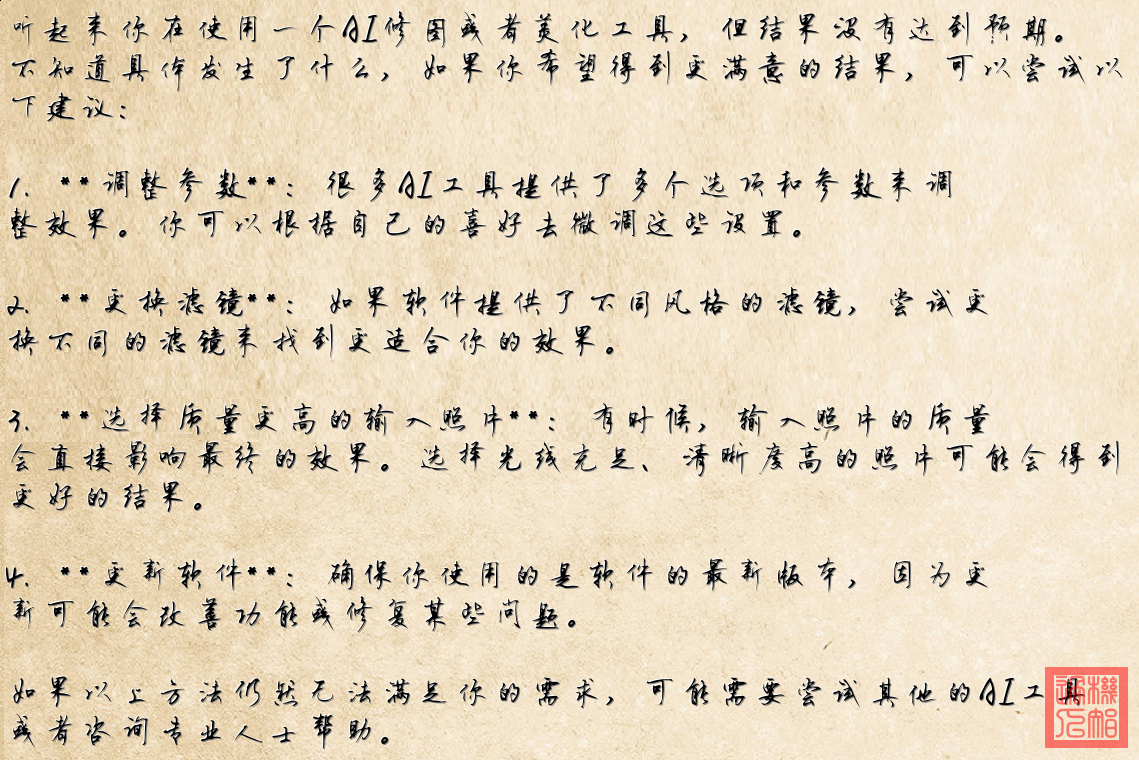 听起来你在使用一个AI修图或者美化工具，但结果没有达到预期。
不知道具体发生了什么，如果你希望得到更满意的结果，可以尝试以
下建议：
1. **调整参数**：很多AI工具提供了多个选项和参数来调
整效果。你可以根据自己的喜好去微调这些设置。
2. **更换滤镜**：如果软件提供了不同风格的滤镜，尝试更
换不同的滤镜来找到更适合你的效果。
3. **选择质量更高的输入照片**：有时候，输入照片的质量
会直接影响最终的效果。选择光线充足、清晰度高的照片可能会得到
更好的结果。
4. **更新软件**：确保你使用的是软件的最新版本，因为更
新可能会改善功能或修复某些问题。
如果以上方法仍然无法满足你的需求，可能需要尝试其他的AI工具
或者咨询专业人士帮助。